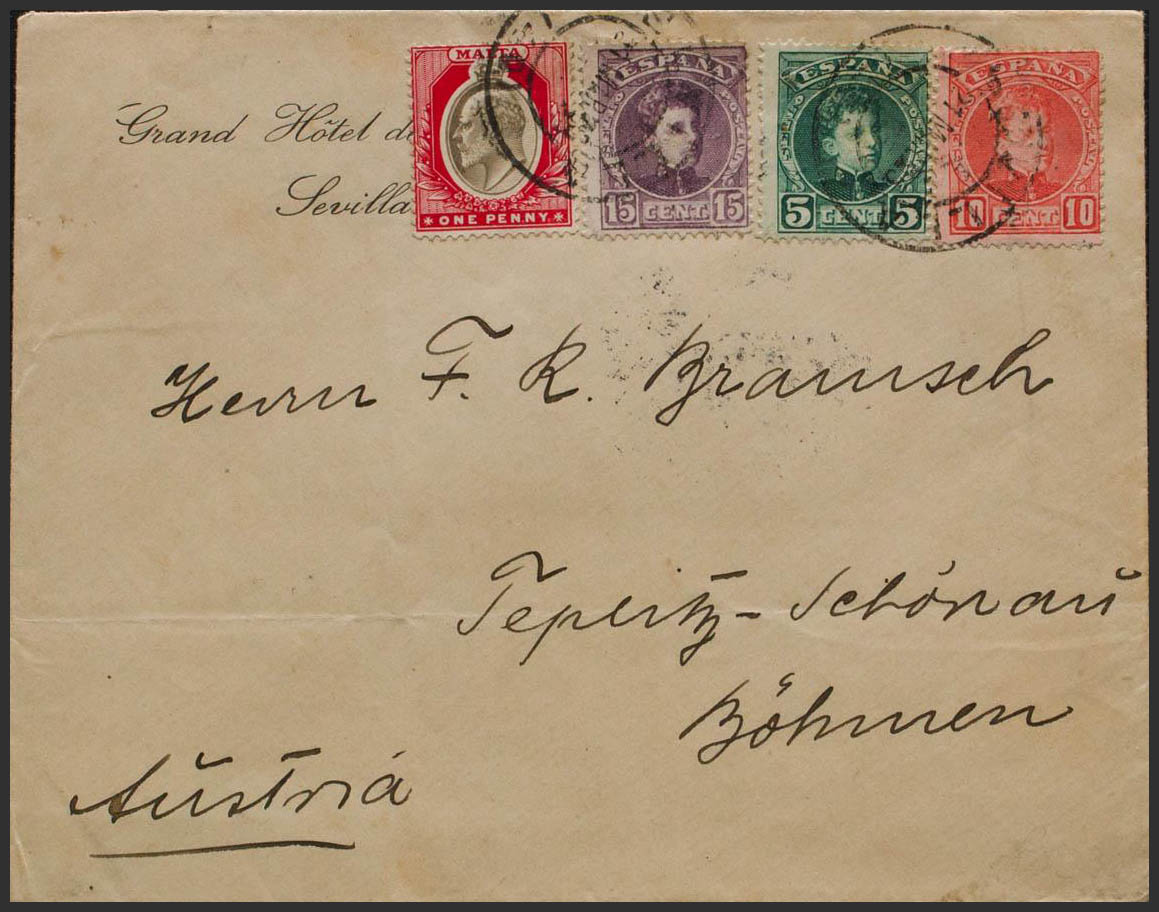 MALTA
ONE PENNY
ESPAÑA
15 CENT 15
ESPAÑA
5 CENT 5
ESPAÑA
10 CENT 10
Grand Hôtel de
Sevilla
Herrn F. R. Bramsch
Teplitz-Schönau
Böhmen
Austria